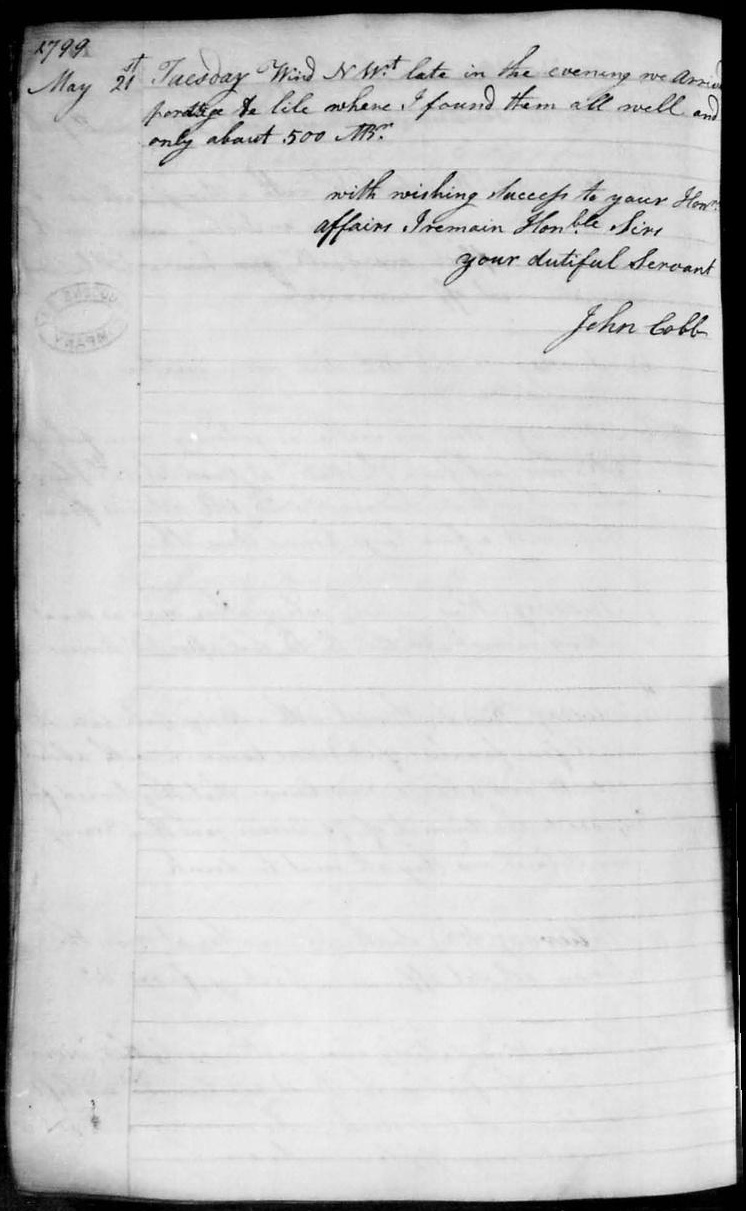 1799
May 21st Tuesday Wind N Wt late in the evening we Arrived
portage de lile where I found them all well and
only about 500 MBr
with wishing Success to your Honrs
affairs I remain Honble Sirs
your dutiful Servant
John Cobb